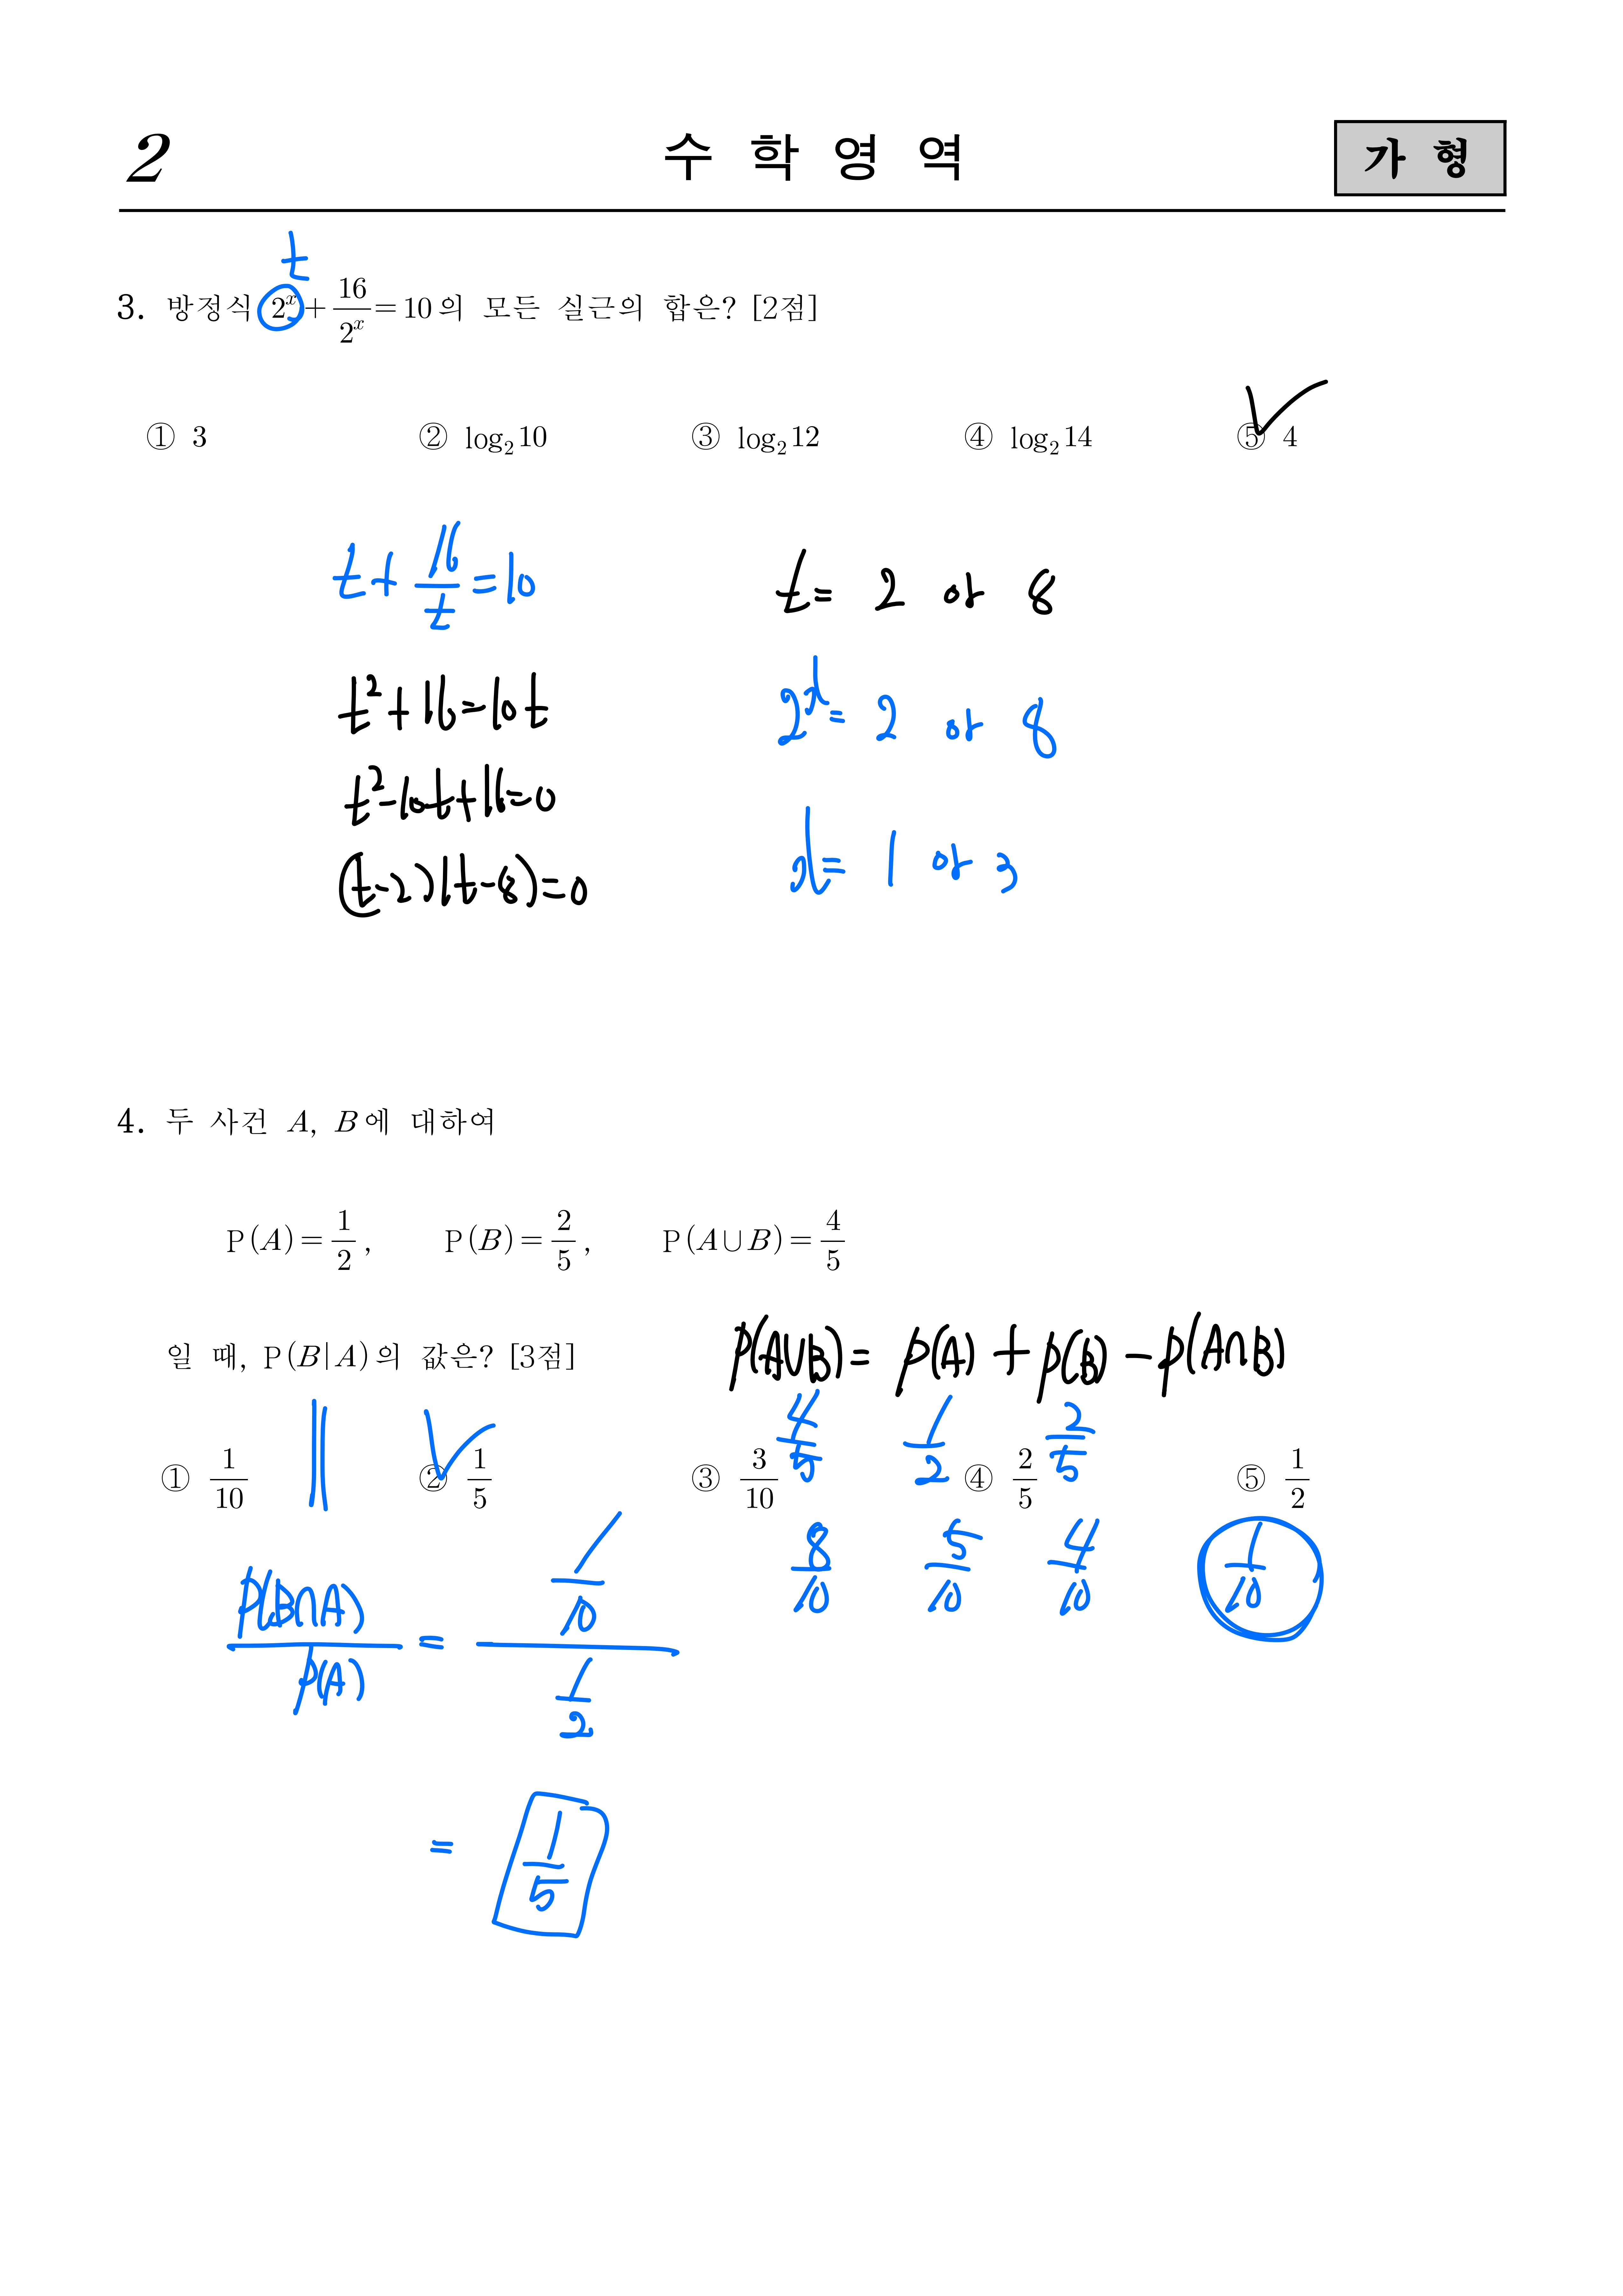 2 수 학 영 역 가 형
t
3. 방정식 2^x + 16/2^x = 10 의 모든 실근의 합은? [2점]
① 3 ② log₂10 ③ log₂12 ④ log₂14 ⑤ 4
t + 16/t = 10
t² + 16 = 10t
t² - 10t + 16 = 0
(t-2)(t-8) = 0
t = 2 or 8
2^x = 2 or 8
x = 1 or 3
4. 두 사건 A, B에 대하여
P(A) = 1/2, P(B) = 2/5, P(A∪B) = 4/5
일 때, P(B|A)의 값은? [3점]
① 1/10 ② 1/5 ③ 3/10 ④ 2/5 ⑤ 1/2
P(A∪B) = P(A) + P(B) - P(A∩B)
4/5 1/2 2/5
8/10 5/10 4/10 1/10
||
P(B∩A)/P(A) = (1/10)/(1/2)
= 1/5